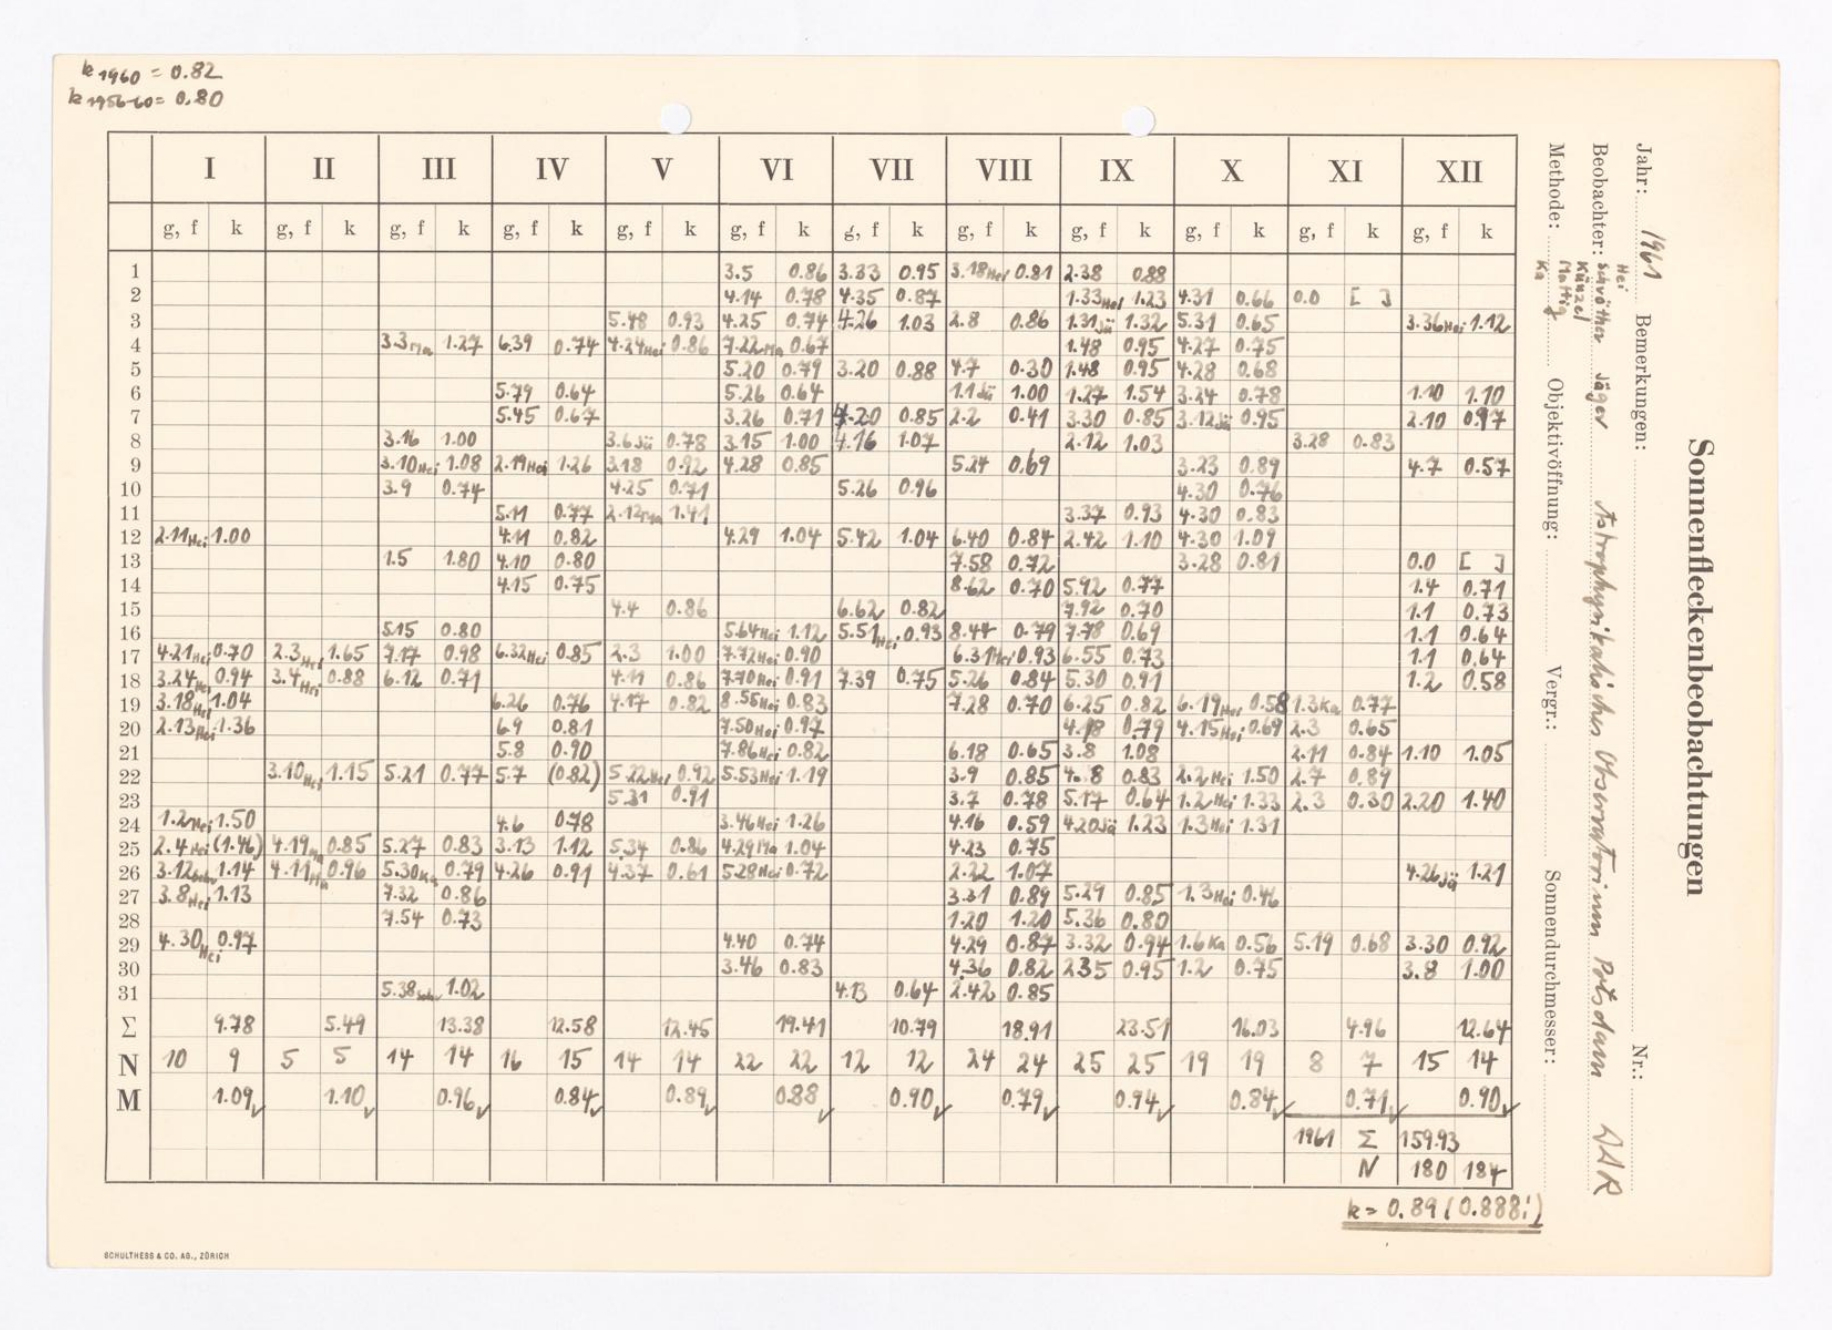 k 1960 = 0.82
k 1956-60 = 0.80
Sonnenfleckenbeobachtungen
Jahr: 1961 Bemerkungen: Nr.:
Beobachter: Schröther Jäger Astrophysikalisches Observatorium Potsdam DAR
Hei
Künzel
Mattig
Ka
Methode: Objektivöffnung: Vergr.: Sonnendurchmesser:
I II III IV V VI VII VIII IX X XI XII
g, f k g, f k g, f k g, f k g, f k g, f k g, f k g, f k g, f k g, f k g, f k g, f k
1 3.5 0.86 3.33 0.95 3.18 Hei 0.81 2.38 0.88
2 4.14 0.78 4.35 0.87 1.33 Hei 1.23 4.31 0.66 0.0 [ ]
3 5.48 0.93 4.25 0.74 4.26 1.03 2.8 0.86 1.31 Jä 1.32 5.31 0.65 3.36 Hei 1.12
4 3.3 Ma 1.27 6.39 0.74 4.24 Hei 0.86 7.22 Ma 0.67 1.48 0.95 4.27 0.75
5 5.20 0.79 3.20 0.88 4.7 0.30 1.48 0.95 4.28 0.68
6 5.79 0.64 5.26 0.64 1.1 Jä 1.00 1.27 1.54 3.24 0.78 1.10 1.10
7 5.45 0.67 3.26 0.71 4.20 0.85 2.2 0.41 3.30 0.85 3.12 Jä 0.95 2.10 0.97
8 3.16 1.00 3.6 Jä 0.78 3.15 1.00 4.16 1.07 2.12 1.03 3.28 0.83
9 3.10 Hei 1.08 2.19 Hei 1.26 3.18 0.92 4.28 0.85 5.24 0.69 3.23 0.89 4.7 0.57
10 3.9 0.74 4.25 0.71 5.26 0.96 4.30 0.76
11 5.11 0.77 2.12 Ma 1.41 3.37 0.93 4.30 0.83
12 2.11 Hei 1.00 4.11 0.82 4.29 1.04 5.42 1.04 6.40 0.84 2.42 1.10 4.30 1.09
13 1.5 1.80 4.10 0.80 7.58 0.72 3.28 0.81 0.0 [ ]
14 4.15 0.75 8.62 0.70 5.92 0.77 1.4 0.71
15 4.4 0.86 6.62 0.82 7.92 0.70 1.1 0.73
16 5.15 0.80 5.64 Hei 1.12 5.51 Hei 0.93 8.44 0.79 7.78 0.69 1.1 0.64
17 4.21 Hei 0.70 2.3 Hei 1.65 7.17 0.98 6.32 Hei 0.85 2.3 1.00 7.72 Hei 0.90 6.31 Hei 0.93 6.55 0.73 1.1 0.64
18 3.24 Hei 0.94 3.4 Hei 0.88 6.12 0.71 4.11 0.86 7.70 Hei 0.91 7.39 0.75 5.26 0.84 5.30 0.91 1.2 0.58
19 3.18 Hei 1.04 6.26 0.76 4.17 0.82 8.55 Hei 0.83 7.28 0.70 6.25 0.82 6.19 Hei 0.58 1.3 Ka 0.77
20 2.13 Hei 1.36 6.9 0.81 7.50 Hei 0.97 4.18 0.79 4.15 Hei 0.69 2.3 0.65
21 5.8 0.90 7.86 Hei 0.82 6.18 0.65 3.8 1.08 2.11 0.84 1.10 1.05
22 3.10 Hei 1.15 5.21 0.77 5.7 (0.82) 5.22 Hei 0.92 5.53 Hei 1.19 3.9 0.85 4.8 0.83 2.2 Hei 1.50 2.7 0.89
23 5.31 0.91 3.7 0.78 5.17 0.64 1.2 Hei 1.33 2.3 0.30 2.20 1.40
24 1.2 Hei 1.50 4.6 0.78 3.46 Hei 1.26 4.16 0.59 4.20 Jä 1.23 1.3 Hei 1.31
25 2.4 Hei (1.46) 4.19 Ma 0.85 5.27 0.83 3.13 1.12 5.34 0.86 4.29 Ma 1.04 4.23 0.75
26 3.12 1.14 4.11 Ma 0.96 5.30 Ka 0.79 4.26 0.91 4.37 0.61 5.28 Hei 0.72 2.22 1.07 4.26 Jä 1.21
27 3.8 Hei 1.13 7.32 0.86 3.31 0.89 5.29 0.85 1.3 Hei 0.46
28 7.54 0.73 1.20 1.20 5.36 0.80
29 4.30 Hei 0.97 4.40 0.74 4.29 0.87 3.32 0.94 1.6 Ka 0.56 5.19 0.68 3.30 0.92
30 3.46 0.83 4.36 0.82 2.35 0.95 1.2 0.75 3.8 1.00
31 5.38 1.02 4.13 0.64 2.42 0.85
Σ 9.78 5.49 13.38 12.58 12.45 19.41 10.79 18.91 23.51 16.03 4.96 12.64
N 10 9 5 5 14 14 16 15 14 14 22 22 12 12 24 24 25 25 19 19 8 7 15 14
M 1.09 1.10 0.96 0.84 0.89 0.88 0.90 0.79 0.94 0.84 0.71 0.90
1961 Σ 159.93
N 180 184
k = 0.89 (0.888!)
SCHULTHESS & CO. AG., ZÜRICH